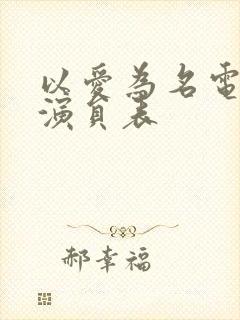 以愛為名電
演員表
郝幸福